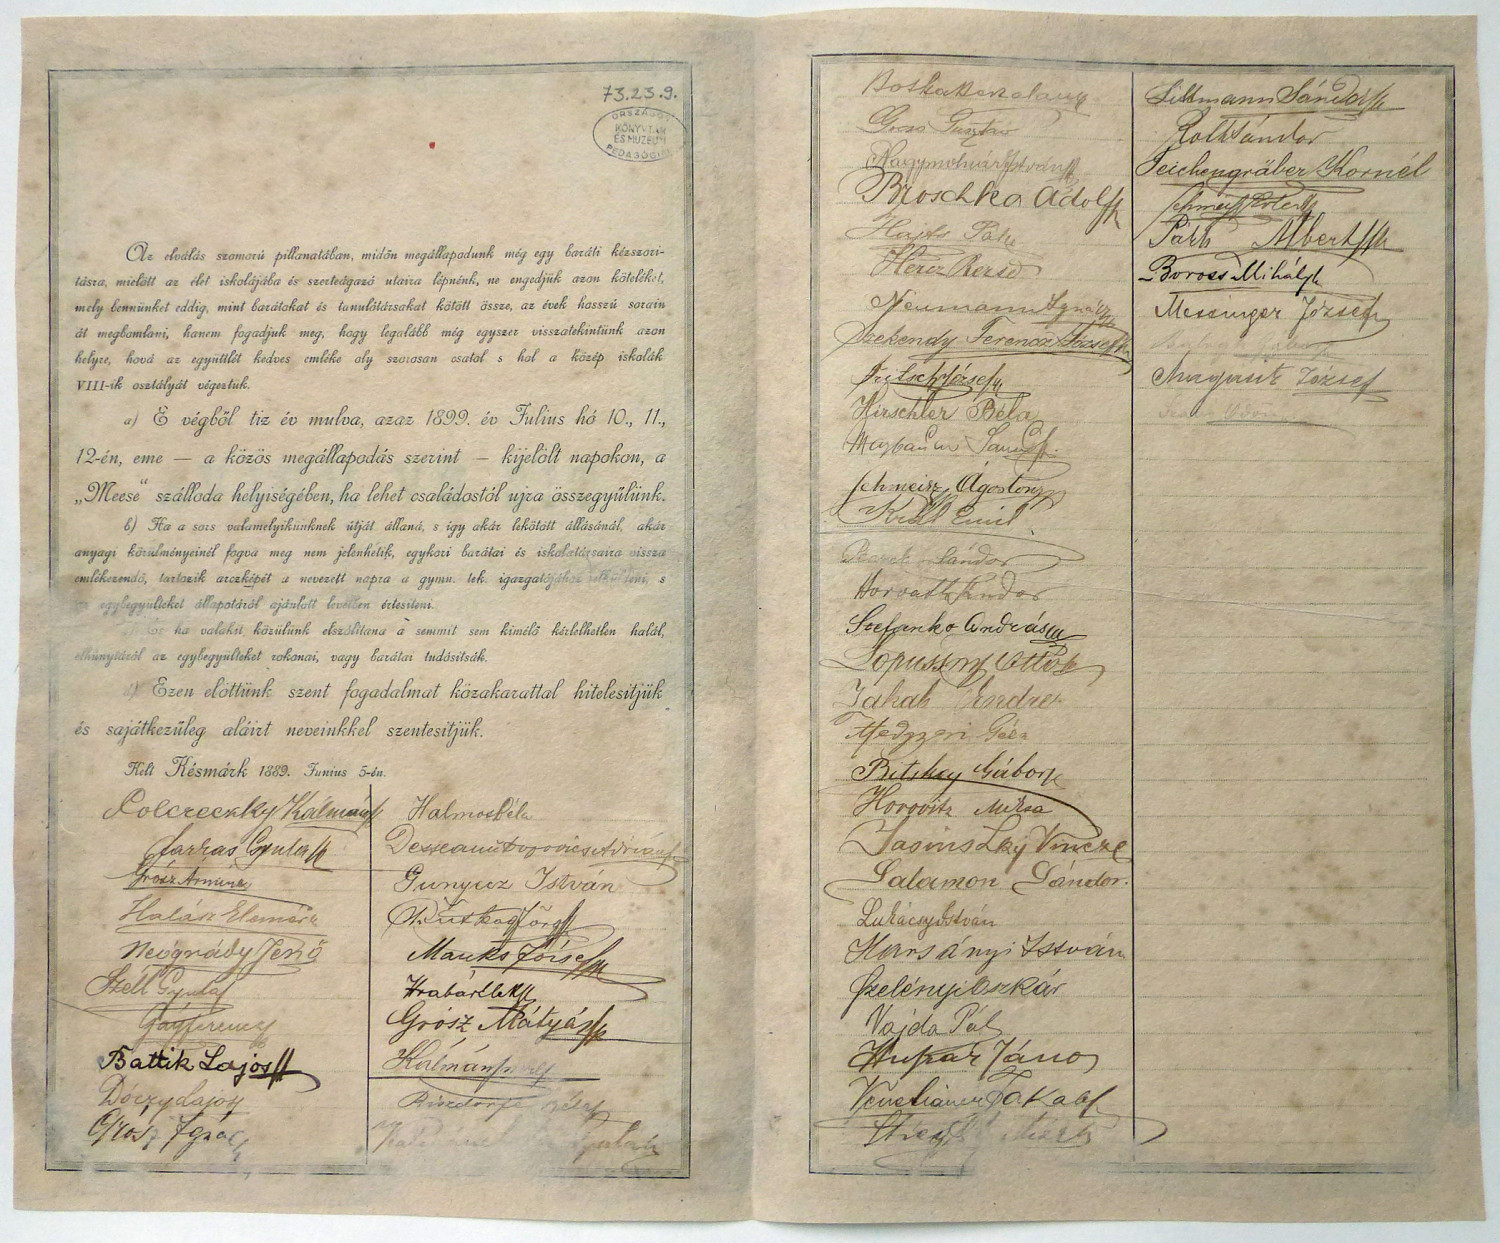 73.23.9.
ORSZÁGOS
KÖNYVTÁR
ÉS MÚZEUM
PEDAGÓGIAI
Az elválás szomorú pillanatában, midőn megállapodunk még egy baráti kézszori-
tásra, mielőtt az élet iskolájába és szerteágazó utaira lépnénk, ne engedjük azon köteléket,
mely bennünket eddig, mint barátokat és tanulótársakat kötött össze, az évek hosszú sorain
át megbomlani, hanem fogadjuk meg, hogy legalább még egyszer visszatekintünk azon
helyre, hová az együttlét kedves emléke oly szorosan csatol s hol a közép iskolák
VIII-ik osztályát végeztük.
a) E végből tiz év mulva, azaz 1899. év Julius hó 10., 11.,
12-én, eme — a közös megállapodás szerint — kijelölt napokon, a
„Meese“ szálloda helyiségében, ha lehet családostól ujra összegyűlünk.
b) Ha a sors valamelyikünknek útját állaná, s igy akár lekötött állásánál, akár
anyagi körülményeinél fogva meg nem jelenhetik, egykori barátai és iskolatársaira vissza
emlékezendő, tartozik arczképét a nevezett napra a gymn. tek. igazgatójához elküldeni, s
az egybegyülteket állapotáról ajánlott levélben értesiteni.
És ha valakit közülünk elszólitana a semmit sem kimélő kérlelhetlen halál,
elhúnytáról az egybegyülteket rokonai, vagy barátai tudósitsák.
Ezen előttünk szent fogadalmat közakarattal hitelesitjük
és sajátkezűleg aláirt neveinkkel szentesitjük.
Kelt Késmárk 1889. Junius 5-én.
Polereczky Kálmán
Farkas Gyula
Grósz Ármin
Halász Elemér
Neógrády Jenő
Széll Gyula
Gág Ferencz
Battik Lajos
Dóczy Lajos
Grosz Ignác
Halmos Béla
Dessean Adrián
Gunyecz István
György
Mauks József
Hrabár Elek
Grósz Mátyás
Kálmán
Gusztáv
Nagymolnár István
Broschka Adolf
Hajts Pál
Hercz Rezső
Neumann Ignácz
Szekendy Ferencz József
Fritsch József
Hirschler Béla
Maybaum Samu
Schmeisz Ágoston
Král Emil
Sándor
Horváth Sándor
Stefanko András
Lopussny Ottó
Jakab Endre
Megyeri Géza
Bitskey Gábor
Horovitz Miksa
Jasinszky Vincze
Salamon Sándor.
Lukácsy István
Harsányi István
Szelényi Oszkár
Vajda Pál
Hupár János
Venetianer Jakab
Littmann Sándor
Roth Sándor
Teichengräber Kornél
Páth Albert
Boross Mihály
Messinger József
Magasit József
Ödön